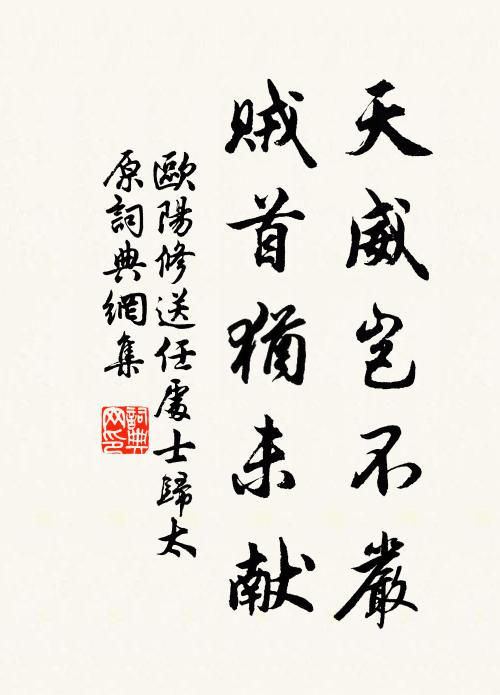 天威岂不嚴
賊首猶未献
歐陽修送任處士歸太
原詞典網集
詞典
网印